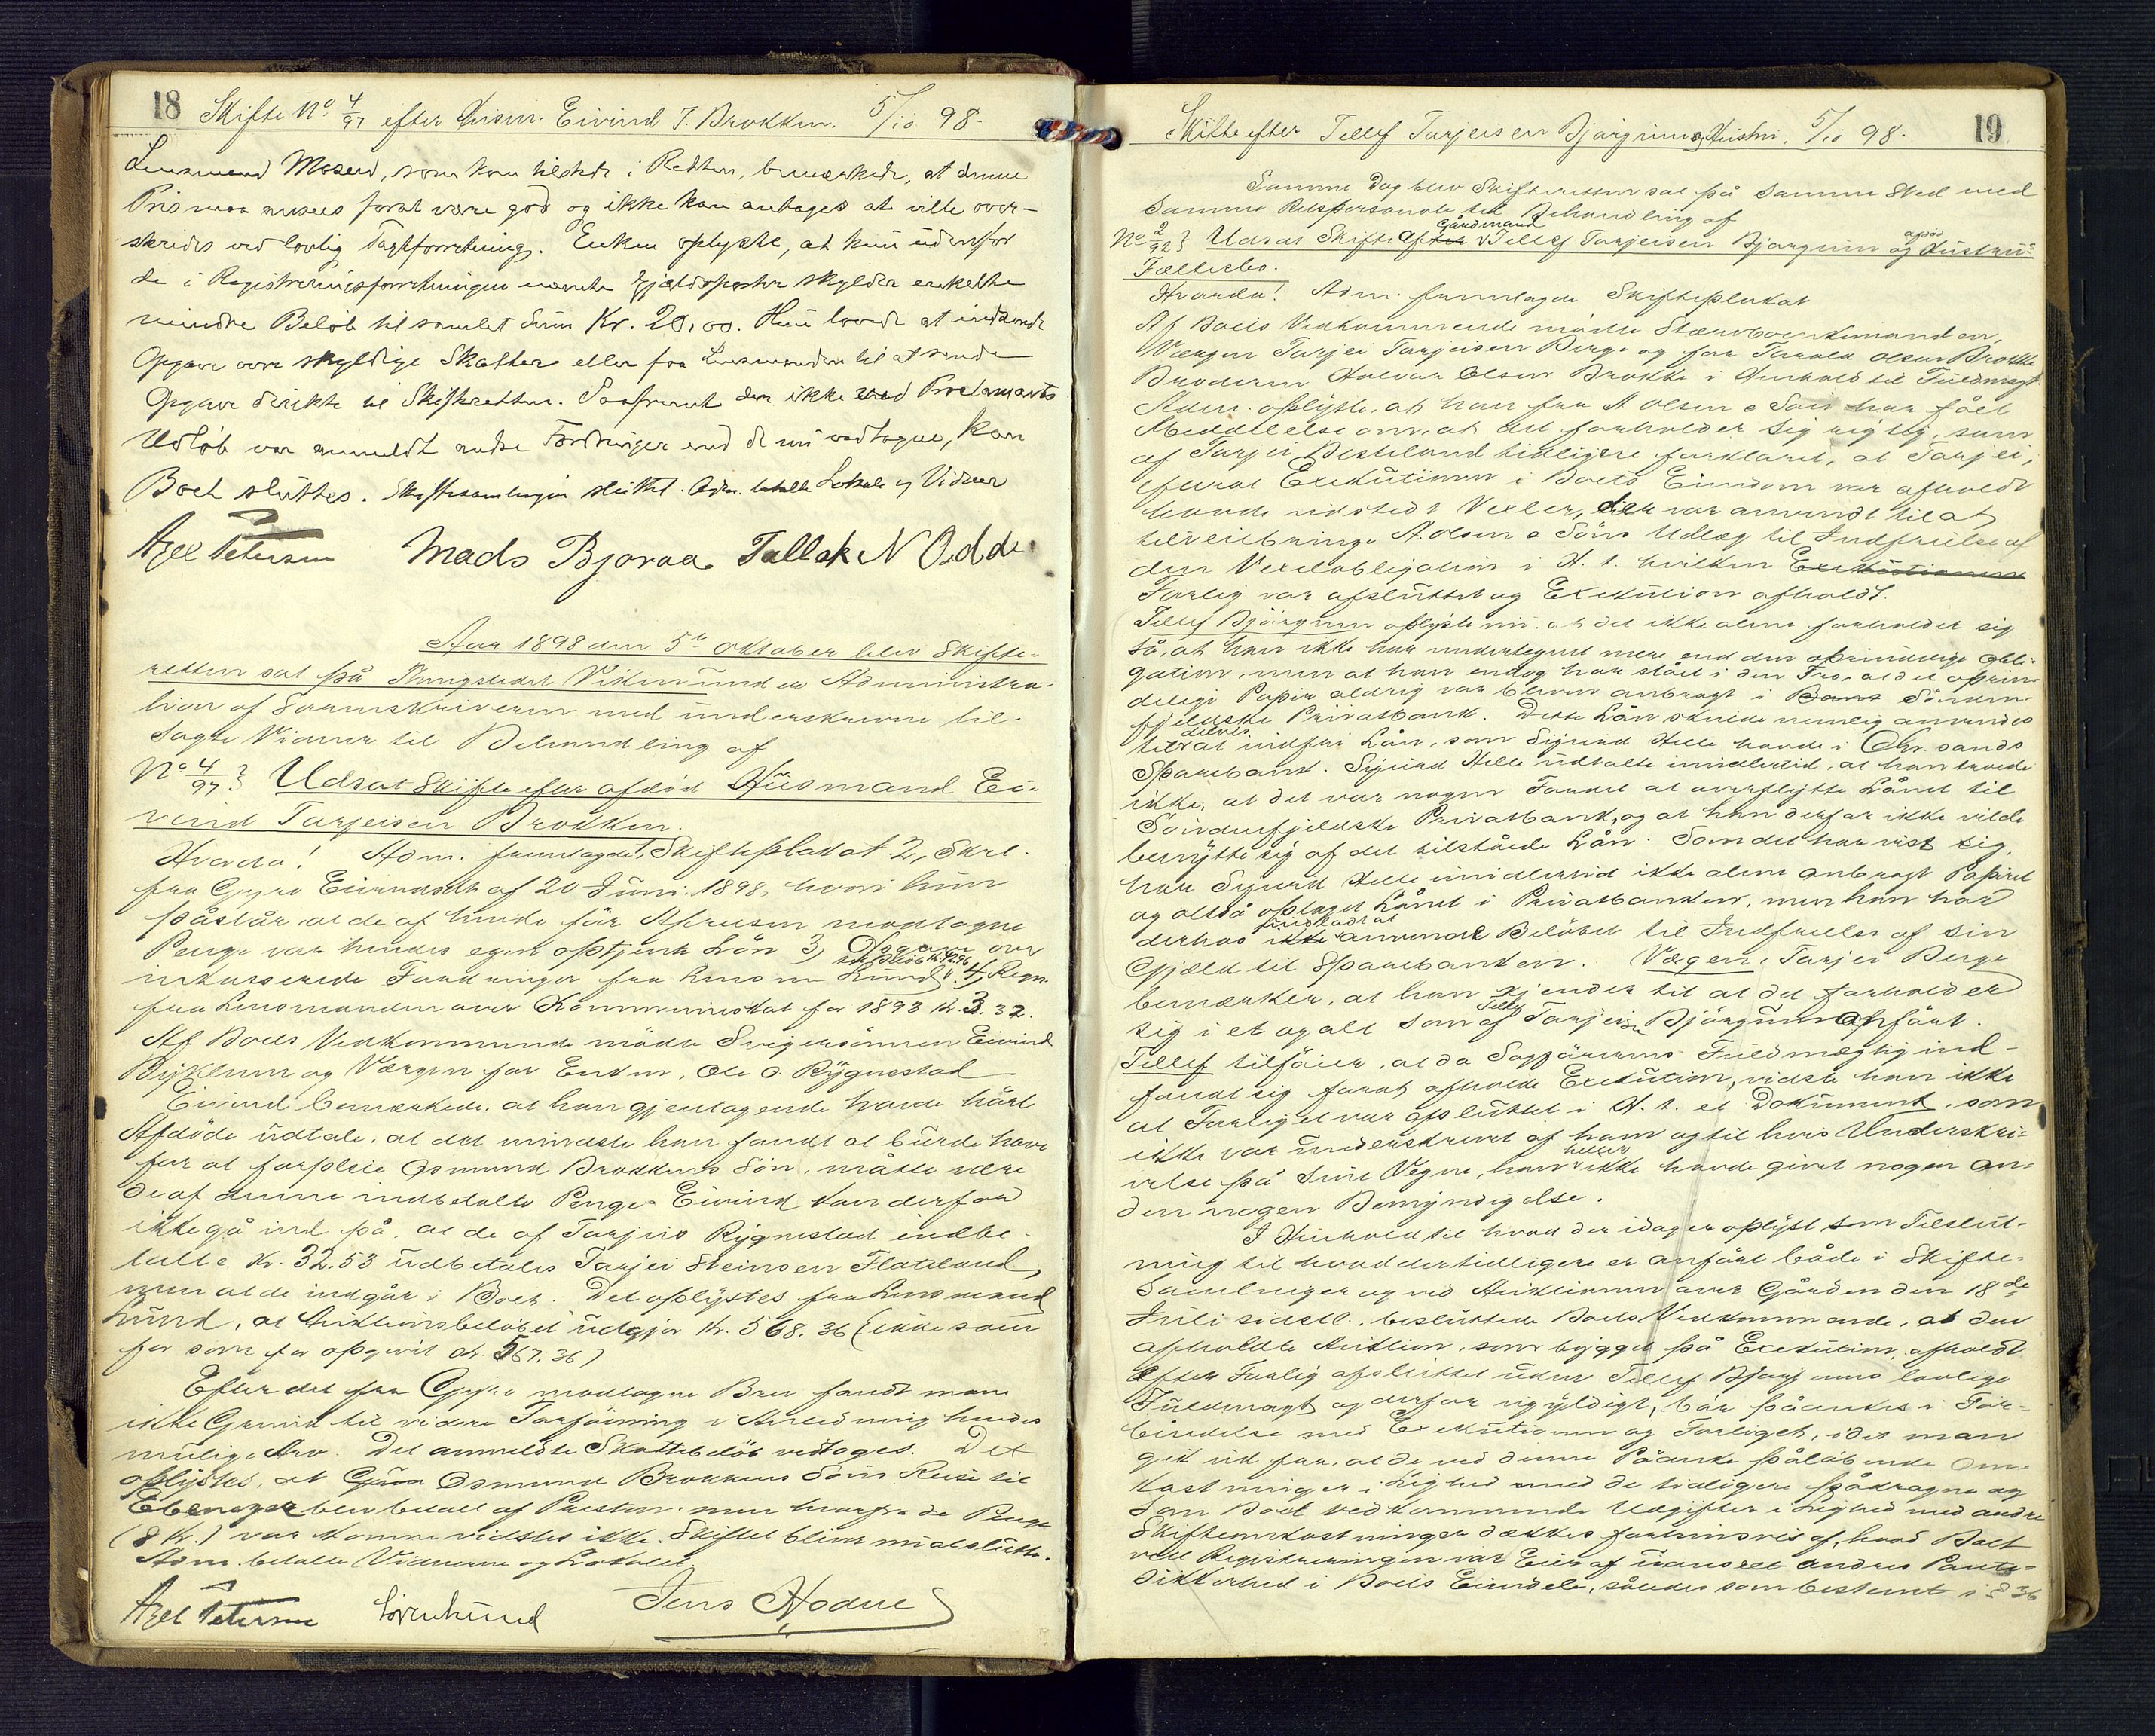 18 Skifte No 4/97 efter Husm. Eivind T. Brokken. 5/10 98-
Lensmand Moseid, som kom tilstede i Retten, bemærkede, at denne
Pris maa ansees forat være god og ikke kan antages at ville over-
skrides ved lovlig Taxtforretning. Enken oplyste, at hun udenfor
de i Registreringsforretningen nævnte Gjældsposter skylder enkelte
mindre Beløb til samlet Sum Kr. 20,00. Hun lovede at indsende
Opgave over skyldige Skatter eller faa Lensmanden til at sende
Opgave direkte til Skifteretten. Saafremt der ikke ved Proclamaets
Udløb var anmeldt andre Fordringer end de nu vedtagne, kan
Boet sluttes. Skiftesamlingen sluttet. Adm. betalte Lokale og Vidner
Axel Petersen Mads Bjoraa. Tallak N Odde.
Aar 1898 den 5te Oktober blev Skifte-
retten sat på Thingstedet Viken under Administra-
tion af Sorenskriveren med underskrevne til-
sagte Vidner til Behandling af
No 4/97} Udsat Skifte efter afdød Husmand Ei-
vind Tarjeisen Brokken.
Hvorda! Adm. fremlagde 1, Skifteplakat 2, Skrl.
fra Gyro Eivindsdtr af 20 Juni 1898, hvori hun
påstår at de af hende før Afreisen modtagne
Penge var hendes egen optjente Løn 3, Opgave over
inkasserede Fordringer fra Lensm Lund 4, Regn.
fra Lensmanden over Kommuneskat for 1893 Kr. 3.32.
Af Boets Vedkommende mødte Svigersønnen Eivind
Byklum og Værgen for Enken, Ole O. Rygnestad
Eivind bemærkede, at han gjentagende havde hørt
Afdøde udtale, at det mindste han fandt at burde have
for at forpleie Osmund Brokkens Søn, måtte være
de af denne indbetalte Penge. Eivind kan derfor
ikke gå ind på, at de af Tarjeis Rygnestad indbe-
talte Kr. 32.53 udbetales Tarjei Steinsen Flateland,
men at de indgår i Boet. Det oplystes fra Lensmand
Lund, at Auktionsbeløbet udgjør Kr. 568.36 (ikke som
før som før opgivit Kr. 567.36)
Efter det fra Gyro modtagne Brev fandt man
ikke Grund til videre Forføining i Anledning hendes
mulige Arv. Det anmeldte Skattebeløb vedtoges. Det
oplystes, at Osmund Brokkens Søns Reise til
Ebenezer blev betalt af Presten. men hvorfra de Penge
(8 Kr.) var komne vidstes ikke. Skiftet bliver at slutte.
Adm. betalte Vidnerne og Lokalet.
Axel Petersen Jens Hodne
Skifte efter Tellef Tarjeisen Bjørgum og Hustru. 5/10 98. 19
Samme Dag blev Skifteretten sat på samme Sted med
samme Retspersonale til Behandling af
Gårdmand afdød
No 2/92} Udsat Skifte efter Tellef Tarjeisen Bjørgum og Hustrus
Fællesbo.
Hvorda! Adm. fremlagde Skifteplakat
Af Boets Vedkommende mødte Stænborenkemanden,
Værgen Tarjei Tarjeisen Berge og for Torold Olsen Brokke
Broderen Halvor Olsen Brokke i Henhold til Fuldmagt
Adm. oplyste, at han fra A Olsen & Søn har fået
Meddelelse om, at det forholder sig rigtig, som
af Tarjei Besteland tidligere forklaret, at Tarjei,
efterat Exekutionen i Boets Eiendom var afholdt
havde udstedt Vexler, der var anvendt til at
tilveiebringe A. Olsen & Søns Udlæg til Indfrielse af
den Vexelobligation i H. t. hvilken Exekutionen
Forlig var afsluttet og Exekution afholdt.
Tellef Bjørgum oplyste nu at det ikke alene forholdet sig
så, at han ikke har undertegnet mere end den oprindelige Obli-
gation, men at han endog har stået i den Tro, at det oprin-
delige Papir aldrig var bleven anbragt i Bank Sønden-
fjeldske Privatbank. Dette Lån skulde nemlig anvendes
delvis
til at indfri Lån, som Sigurd Helle havde i Chr. sands
Sparebank. Sigurd Helle udtalte imidlertid, at han troede
ikke, at det var nogen Fordel at overflytte Lånet til
Søndenfjeldske Privatbank, og at han derfor ikke vilde
benytte sig af det tilståede Lån. Som det har vist sig,
har Sigurd Helle imidlertid ikke alene anbragt Papiret
og altså optaget Lånet i Privatbanken, men han har
undladt at
derhos ikke anvende Beløbet til Indfrielse af sin
Gjæld til Sparebanken. Værgen, Tarjei Berge
bemærker, at han kjender til at det forholder
Tellef
sig i et og alt som af Tarjeisen Bjørgum anført.
Tellef tilføier, at da Sagførerens Fuldmægtig ind-
fandt sig forat afholde Exekution, vidste han ikke
at Forliget var afsluttet i H. t. et Dokument, som
ikke var underskrevet af ham og til hvis Underskri-
heller
velse på Sine Vegne, han ikke havde givet nogen an-
den nogen Bemyndigelse.
I Henhold til hvad der idag er oplyst som Tilslut-
ning til hvad der tidligere er anført både i Skifte-
samlinger og ved Auktionen over Gården den 18de
Juli sidstl. besluttede Boets Vedkommende, at den
afholdte Auktion, som bygget på Exekution, afholdt
efter Forlig afsluttet uden Tellef Bjørgums lovlige
Fuldmagt og derfor ugyldigt, bør påankes i For-
bindelse med Exekutionen og Forliget, idet man
gik ud fra, at de ved denne Påanke påløbende Om-
kostninger i Lighed med de tidligere pådragne og
som Boet vedkommende Udgifter i Lighed med andre
Skifteomkostninger dækkes fortrinsvis af, hvad Boet
ved Registreringen var Eier af uanseet andres Pante-
sikkerhed i Boets Eiendele, således som bestemt i § 36